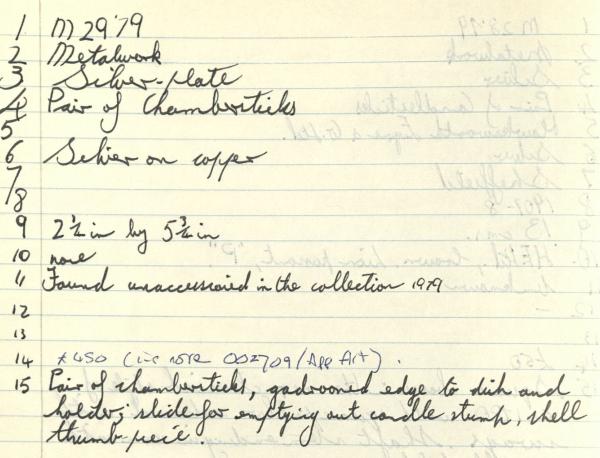 1 M29'79
2 Metalwork
3 Silver-plate
4 Pair of Chambersticks
5
6 Silver on copper
7
8
9 2½in by 5¾in
10 none
11 Found unaccessioned in the collection 1979
12
13
14 £450 (ins note 002709/App Art).
15 Pair of chambersticks, gadrooned edge to dish and
holder; slide for emptying out candle stump, shell
thumb-piece.